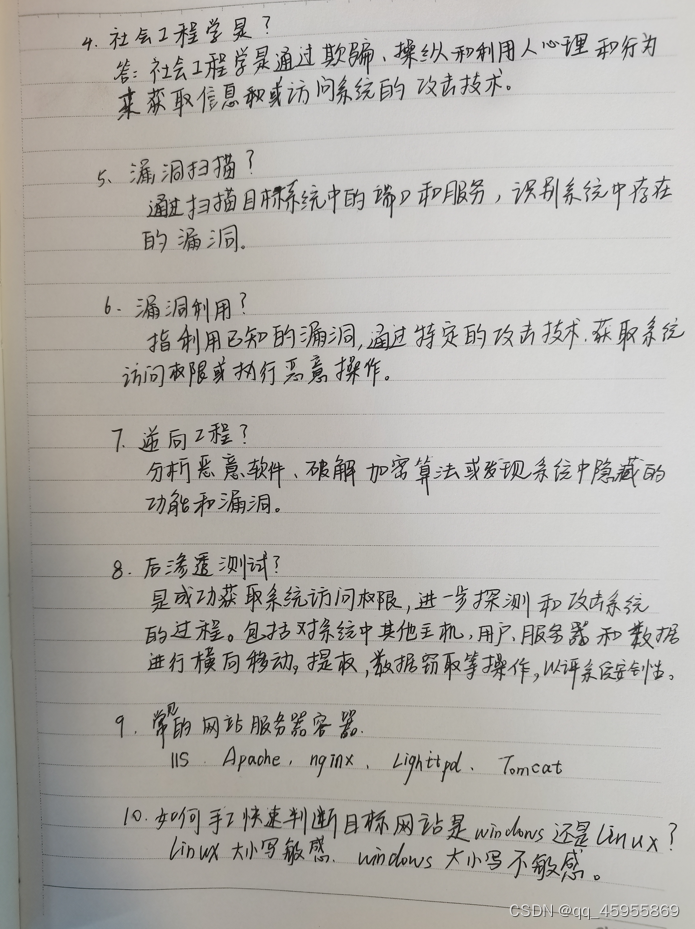 4. 社会工程学是？
答：社会工程学是通过欺骗、操纵和利用人心理和行为
来获取信息和或访问系统的攻击技术。
5、漏洞扫描？
通过扫描目标系统中的端口和服务，识别系统中存在
的漏洞。
6. 漏洞利用？
指利用已知的漏洞，通过特定的攻击技术.获取系统
访问权限或执行恶意操作。
7. 逆向工程？
分析恶意软件、破解加密算法或发现系统中隐藏的
功能和漏洞。
8. 后渗透测试？
是成功获取系统访问权限，进一步探测和攻击系统
的过程。包括对系统中其他主机，用户、服务器和数据
进行横向移动，提权，数据窃取等操作，以评系统安全性。
9. 常见的网站服务器容器.
IIS . Apache . nginx . Lighttpd . Tomcat
10. 如何手工快速判断目标网站是windows还是linux？
linux 大小写敏感. windows 大小写不敏感。
CSDN @qq_45955869